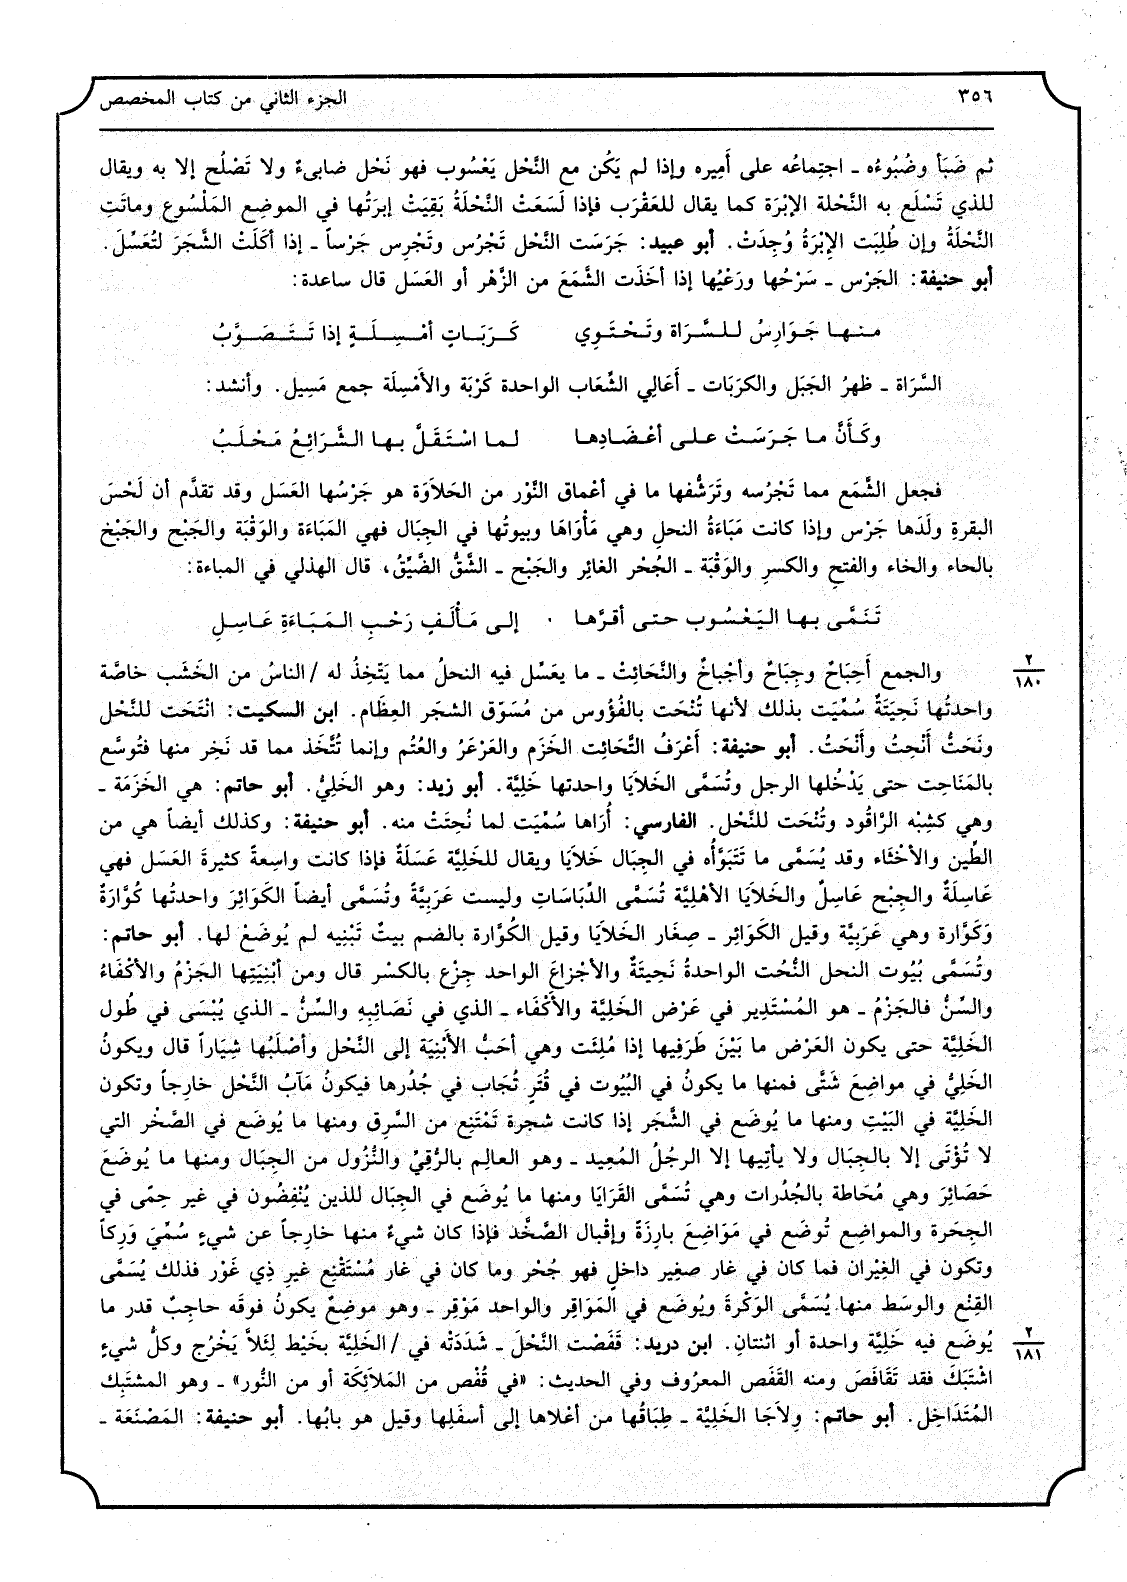 ٣٥٦ الجزء الثاني من كتاب المخصص
ثم ضَبَأ وضُبُوءُه ـ اجتِماعُه على أَمِيره وإذا لم يَكُن مع النَّحْل يَعْسُوب فهو نَحْل ضابىءٌ ولا تَصْلُح إلا به ويقال
للذي تَسْلَع به النَّحْلة الإبْرَة كما يقال للعَقْرَب فإذا لَسَعَتْ النَّحْلَةُ بَقِيَتْ إبرَتُها في الموضِع المَلْسُوع وماتَتِ
النَّحْلَةُ وإن طُلِبَت الإِبْرَةُ وُجِدَتْ. أبو عبيد: جَرَسَت النَّحْل تَجْرُس وتَجْرِس جَرْساً ـ إذا أكَلَتْ الشَّجَرَ لتُعَسِّلَ.
أبو حنيفة: الجَرْس ـ سَرْحُها ورَعْيُها إذا أخَذَت الشَّمَعَ من الزَّهْر أو العَسَل قال ساعدة:
منها جَوَارِسُ للسَّرَاة وتَحْتَوِي كَرَبَاتٍ أمْسِلَةٍ إذا تَتَصَوَّبُ
السَّرَاة ـ ظهرُ الجَبَل والكرَبَات ـ أَعَالِي الشِّعَاب الواحدة كَرْبَة والأَمْسِلَة جمع مَسِيل. وأنشد:
وكَأَنَّ ما جَرَسَتْ على أعْضَادِها لما اسْتَقَلَّ بها الشَّرَائِعُ مَحْلَبُ
فجعل الشَّمَع مما تَجْرُسه وتَرَشُّفها ما في أعْماق النَّوْر من الحَلاَوَة هو جَرْسُها العَسَل وقد تقدَّم أن لَحْسَ
البقرةِ ولَدَها جَرْس وإذا كانت مَبَاءَةُ النحلِ وهي مَأْوَاها وبيوتُها في الجِبَال فهي المَبَاءَة والوَقْبَة والجَبْح والجَبْخ
بالحاء والخاء والفتح والكسرِ والوَقْبَة ـ الجُحْر الغائِر والجَبْح ـ الشَّقُّ الضَّيِّقُ، قال الهذلي في المباءة:
تَنَمَّى بها اليَعْسُوب حتى أقرَّها إلى مَأْلَفٍ رَحْبِ المَبَاءَةِ عَاسِلِ
والجمع أَجبَاحٌ وجِبَاحٌ وأجْباخٌ والنَّحَائِتْ ـ ما يعَسِّل فيه النحلُ مما يَتَّخِذُ له /الناسُ من الخَشَب خاصَّة
٢
١٨٠
واحدتُها نَحِيتَةٌ سُمِّيَت بذلك لأنها تُنْحَت بالفُؤُوس من مُسَوَّق الشجَر العِظَام. ابن السكيت: انْتَحَت للنَّحْل
ونَحَتُّ أَنْحِتُ وأَنْحَتُ. أبو حنيفة: أَعْرَفُ النَّحَائِت الخَزَم والعَرْعَرُ والعُتُم وإنما تُتَّخَذ مما قد نَخِر منها فتُوسَّع
بالمَنَاحِت حتى يَدْخُلها الرجل وتُسَمَّى الخَلاَيَا واحدتها خَلِيَّة. أبو زيد: وهو الخَلِيُّ. أبو حاتم: هي الخَزَمَة ـ
وهي كشِبْه الرَّاقُود وتُنْحَت للنَّحْل. الفارسي: أُرَاها سُمِّيَت لما نُحِتَتْ منه. أبو حنيفة: وكذلك أيضاً هي من
الطِّين والأَخْثَاء وقد يُسَمَّى ما تَتَبَوَّأُه في الجِبَال خَلاَيَا ويقال للخَلِيَّة عَسَلَةٌ فإذا كانت واسِعةً كثيرةَ العَسَل فهي
عَاسِلَةٌ والجِبْح عَاسِلٌ والخَلاَيَا الأهْلِيَّة تُسَمَّى الدِّبَاسَاتِ وليست عَرَبِيَّةً وتُسَمَّى أيضاً الكَوَائِرَ واحدتُها كُوَّارَةٌ
وَكَوَّارة وهي عَرَبِيَّة وقيل الكَوَائِر ـ صِغَار الخَلاَيَا وقيل الكُوَّارة بالضم بيتٌ تَبْنِيه لم يُوضَعْ لها. أبو حاتم:
وتُسَمَّى بُيُوت النحل النُّحُت الواحدةُ نَحِيتَةٌ والأجْزاعَ الواحد جِزْع بالكسْر قال ومن أبْنِيَتِها الجَزْمُ والأَكْفَاءُ
والسِّنُّ فالجَزْمُ ـ هو المُسْتَدِير في عَرْض الخَلِيَّة والأَكْفَاء ـ الذي في نَصَائِبِهِ والسِّنُّ ـ الذي يُبْسَى في طُول
الخَلِيَّة حتى يكون العَرْض ما بَيْنَ طَرَفِيها إذا مُلِئَت وهي أحَبُّ الأَبْنِيَة إلى النَّحْل وأصْلَبُها شِيَاراً قال ويكونُ
الخَلِيُّ في مواضِعَ شَتَّى فمنها ما يكونُ في البُيُوت في قُتَرٍ تُجَاب في جُدُرها فيكونُ مَآبُ النَّحْل خارِجاً وتكون
الخَلِيَّة في البَيْتِ ومنها ما يُوضَع في الشَّجَر إذا كانت شجرة تَمْتَنِع من السَّرِق ومنها ما يُوضَع في الصَّخْر التي
لا تُؤْتَى إلا بالحِبَال ولا يأتِيها إلا الرجلُ المُعِيد ـ وهو العالِم بالرُّقِيِّ والنُّزُول من الجِبَال ومنها ما يُوضَعَ
حَصَائِرَ وهي مُحَاطة بالجُدُرات وهي تُسَمَّى القَرَايَا ومنها ما يُوضَع في الجِبَال للذين يُنْفِضُون في غير حِمًى في
الجِحَرة والمواضِع تُوضَع في مَوَاضِعَ بارِزَةً وإقْبال الصَّخْد فإذا كان شيءٌ منها خارِجاً عن شيءٍ سُمِّيَ وَرِكاً
وتكون في الغِيْران فما كان في غار صغِير داخلٍ فهو جُحْر وما كان في غار مُسْتَقْنِع غيرِ ذِي غَوْر فذلك يُسَمَّى
القِنْع والوسَط منها يُسَمَّى الوَكْرةَ ويُوضَع في المَوَاقِر والواحد مَوْقِر ـ وهو موضِعٌ يكونُ فوقَه حاجِبٌ قدر ما
يُوضَع فيه خَلِيَّة واحدة أو اثنتان. ابن دريد: قَفَصْت النَّحْلَ ـ شَدَدَتْه في /الخَلِيَّة بخَيْط لِئَلاَّ يَخْرُج وكلُّ شيءٍ
٢
١٨١
اشْتَبَكَ فقد تَقَافَصَ ومنه القَفَص المعرُوف وفي الحديث: «في قُفْص من المَلاَئِكَة أو من النُّور» ـ وهو المشتَبِك
المُتَدَاخِل. أبو حاتم: وِلاَجَا الخَلِيَّة ـ طِبَاقُها من أعْلاها إلى أسفَلِها وقيل هو بابُها. أبو حنيفة: المَصْنَعَة ـ